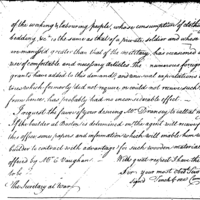 of the working & labouring people, whose consumption of clothing
bedding &c is the same as that of a private soldier and whose
is manifest greater than that of the military, has increased
use of comfortable and necessary articles the numerous foreign
grants have added to this demand; and
which formerly did not require, or would not receive such
from hence, has probably had no inconsiderable effect.
I request the favor of your desiring Mr Dranoy to call at
If the builder at Boston is determined on the agent will
this office some papers and information which will enable him
builder to contract with advantage for such wooden materials
offered by Mr Vaughan
With great respect I have the
to be
Sir your most obt Servt
signed Tench Coxe
The Secretary at War